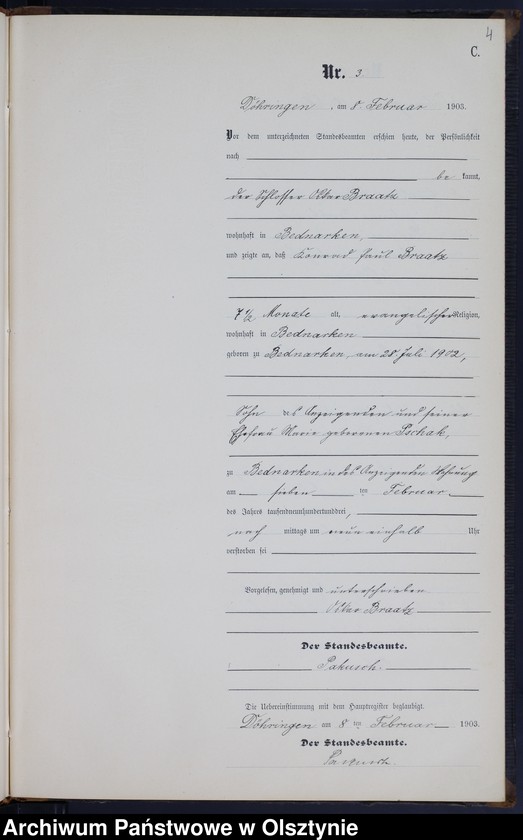 4
C.
Nr. 3.
Döhringen, am 8. Februar 1903.
Vor dem unterzeichneten Standesbeamten erschien heute, der Persönlichkeit
nach
be kannt,
der Schlosser Braatz
wohnhaft in Bednarken,
und zeigte an, daß Konrad Paul Braatz
7 1/2 Monate alt, evangelischer Religion,
wohnhaft in Bednarken
geboren zu Bednarken, am 28. Juli 1902,
Sohn des Anzeigenden und seiner
Ehefrau Marie geborenen
zu Bednarken in des Anzeigenden Wohnung
am sieben ten Februar
des Jahres tausendneunhundertunddrei,
nach mittags um neun einhalb Uhr
verstorben sei
Vorgelesen, genehmigt und unterschrieben
Braatz
Der Standesbeamte.
Die Uebereinstimmung mit dem Hauptregister beglaubigt.
Döhringen am 8 ten Februar 1903.
Der Standesbeamte.
Archiwum Państwowe w Olsztynie